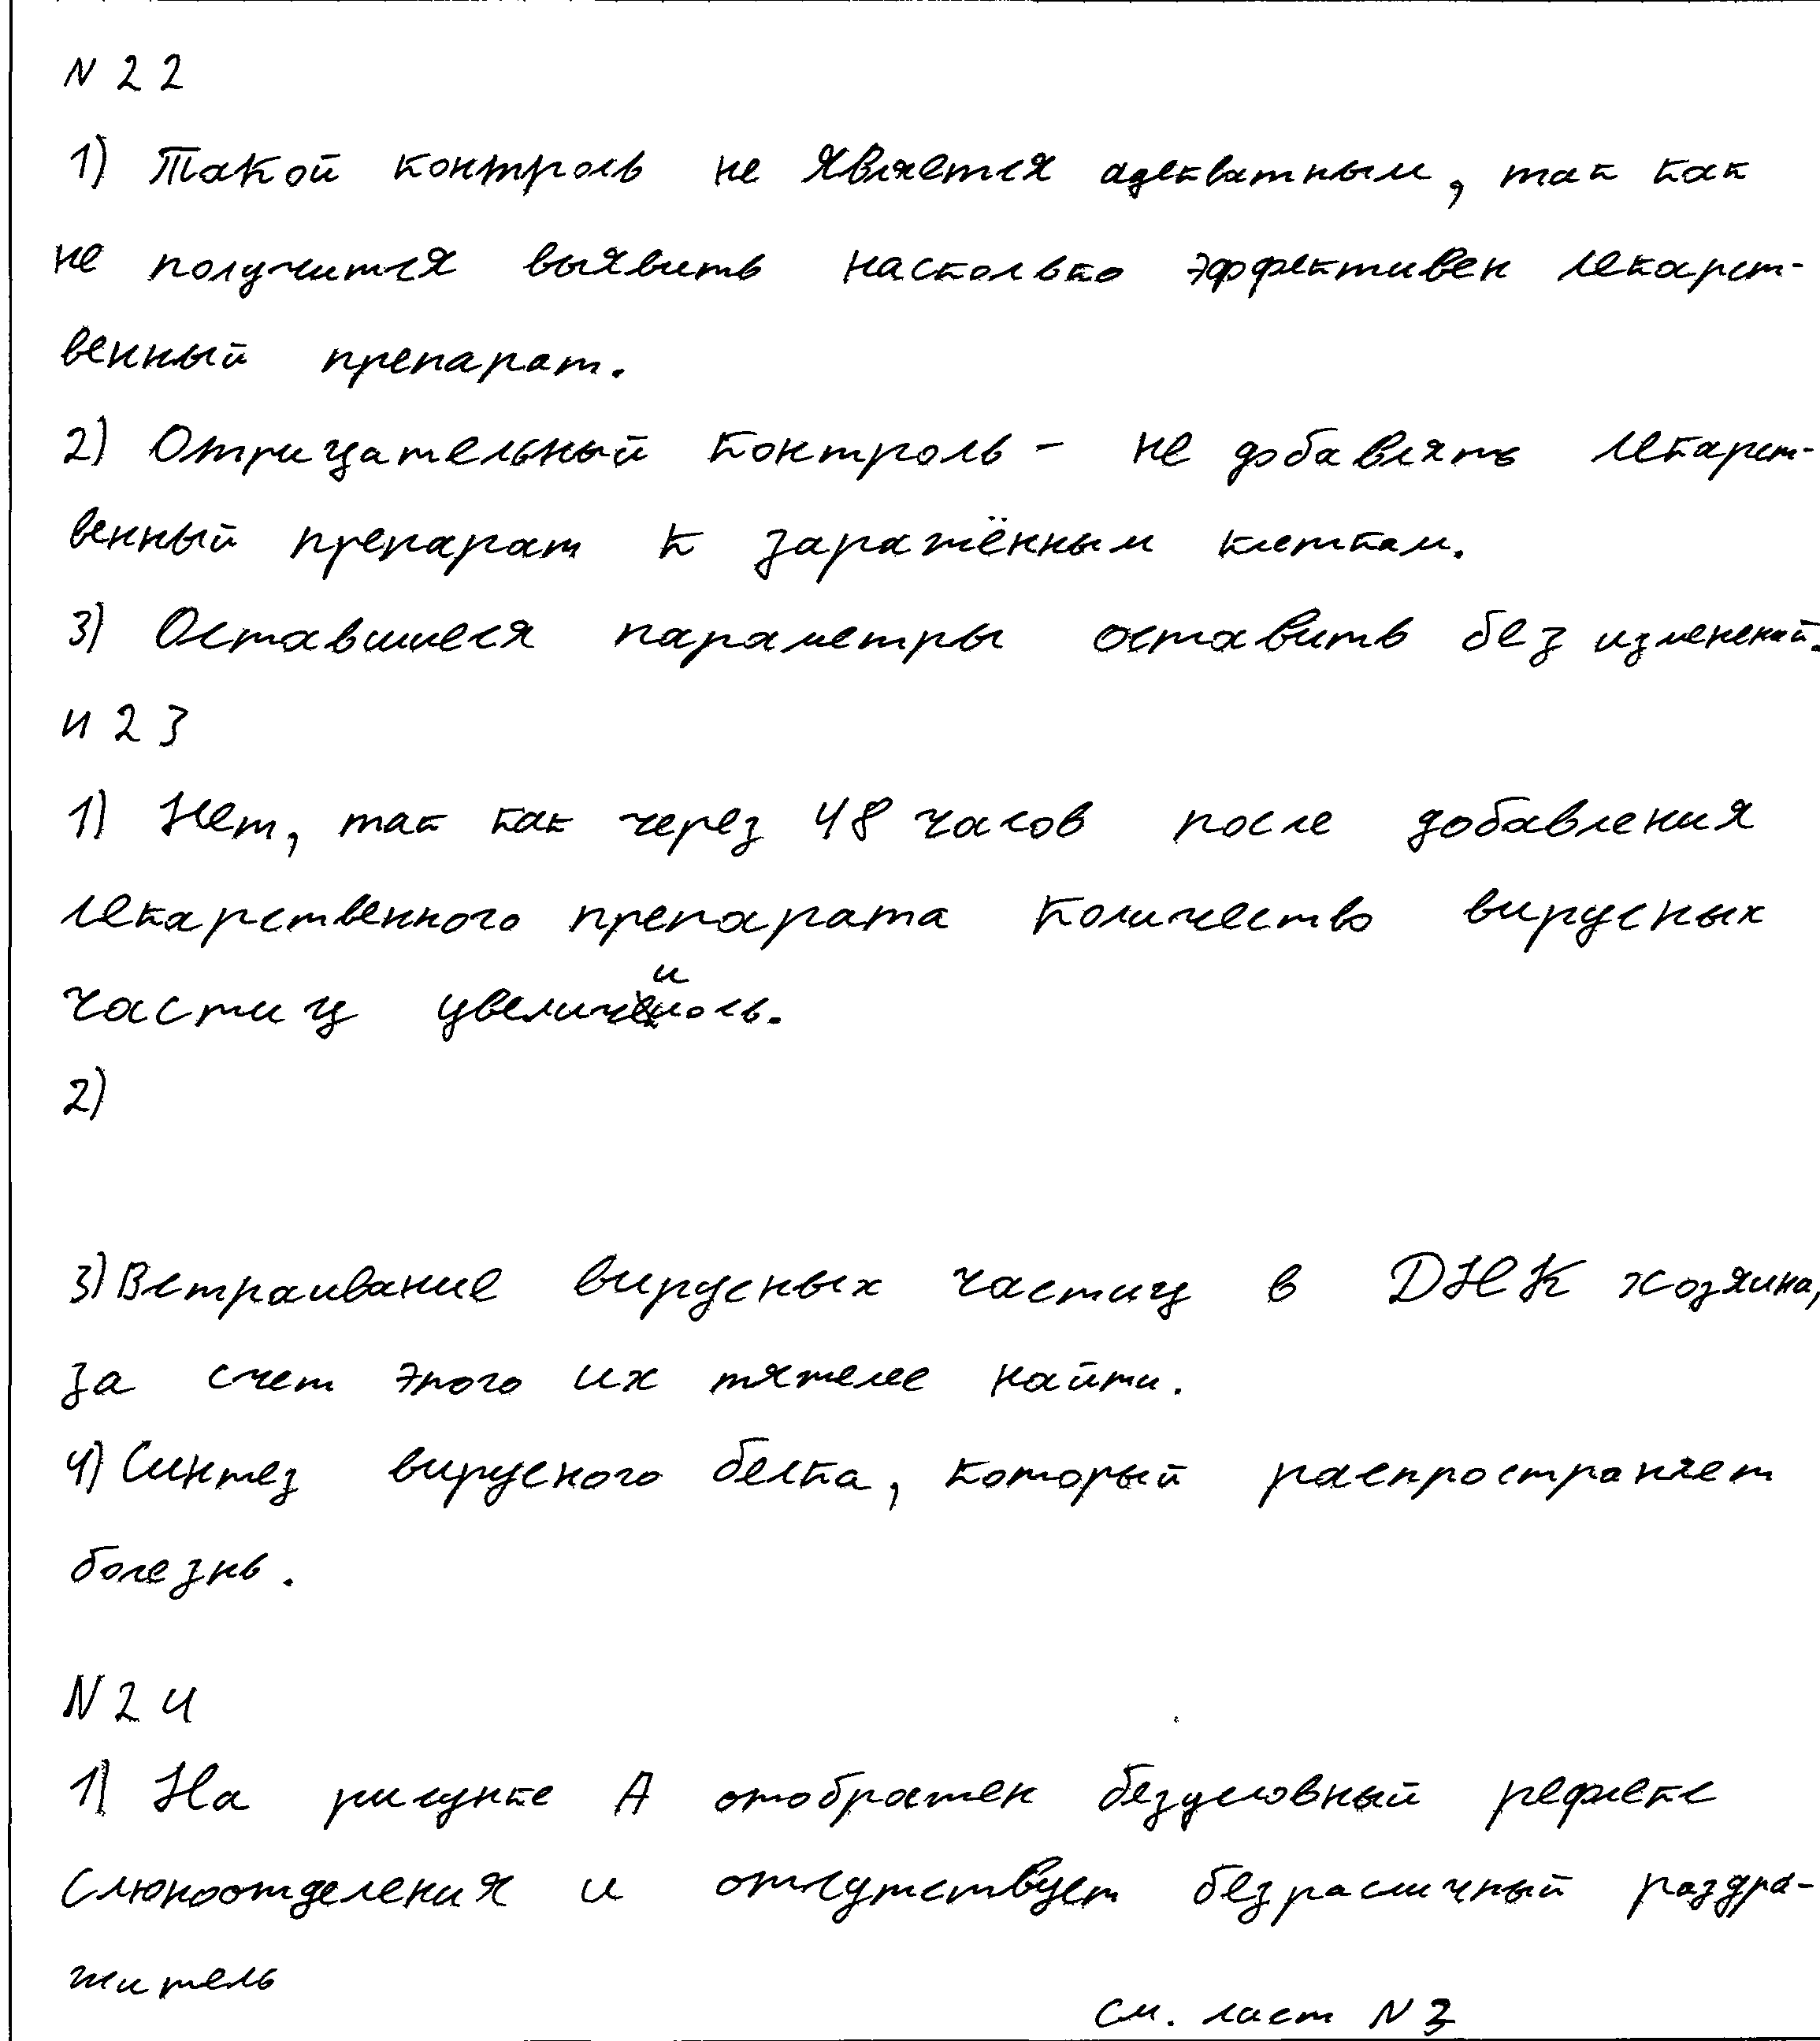 N 22
1) Такой контроль не является адекватным, так как
не получится выявить насколько эффективен лекарст-
венный препарат.
2) Отрицательный контроль - не добавлять лекарст-
венный препарат к заражённым клеткам.
3) Оставшиеся параметры оставить без изменений.
N 23
1) Нет, так как через 48 часов после добавления
лекарственного препарата количество вирусных
частиц увеличилось.
2)
3) Встраивание вирусных частиц в ДНК хозяина,
за счет этого их тяжелее найти.
4) Синтез вирусного белка, который распространяет
болезнь.
N 24
1) На рисунке А отображен безусловный рефлекс
слюноотделения и отсутствует безразличный раздра-
житель
см. лист N 3